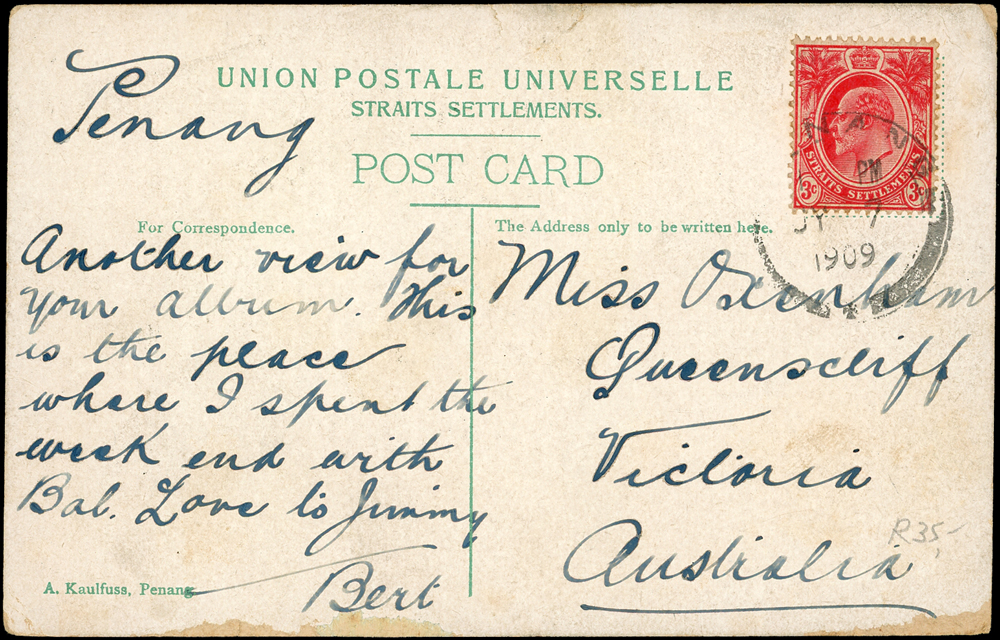 Penang
UNION POSTALE UNIVERSELLE
STRAITS SETTLEMENTS.
POST CARD
For Correspondence.
Another view for
your album. This
is the place
where I spent the
week end with
Bab. Love to Jimmy
Bert
A. Kaulfuss, Penang
The Address only to be written here.
Miss Oxenham
Queenscliff
Victoria
Australia
3c STRAITS SETTLEMENTS 3c
PM
JY 7
1909
R35,-